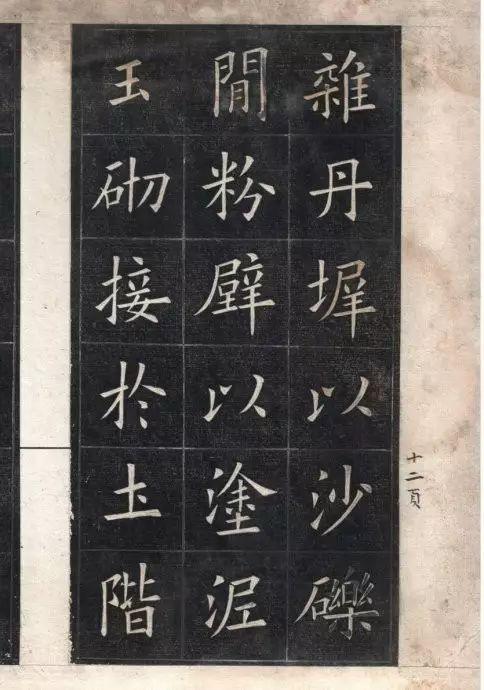 雜丹墀以沙礫
間粉壁以塗泥
玉砌接於土階
十二頁